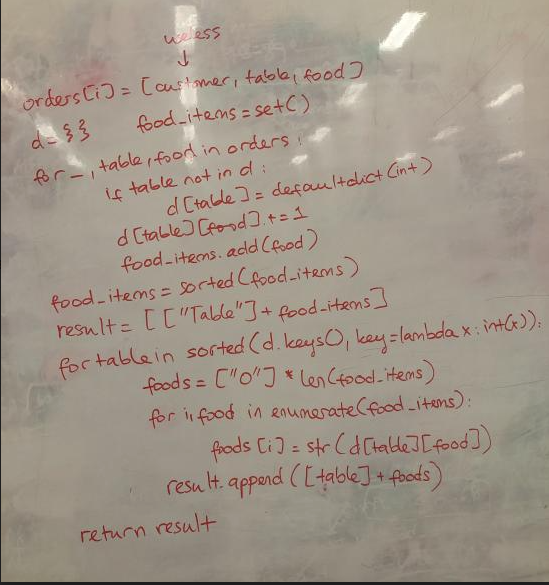 useless
↓
orders[i] = [customer, table, food]
d = {} food_items = set()
for _, table, food in orders:
if table not in d:
d[table] = defaultdict(int)
d[table][food] += 1
food_items.add(food)
food_items = sorted(food_items)
result = [["Table"] + food_items]
for table in sorted(d.keys(), key=lambda x: int(x)):
foods = ["0"] * len(food_items)
for i, food in enumerate(food_items):
foods[i] = str(d[table][food])
result.append([table] + foods)
return result